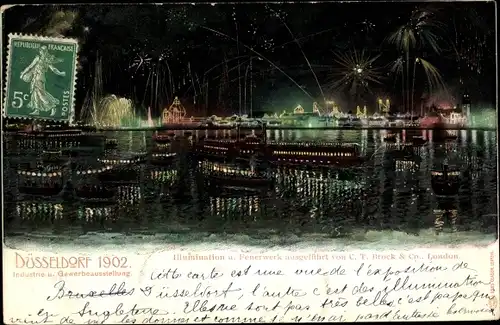 REPUBLIQUE FRANÇAISE
5c
POSTES
DÜSSELDORF 1902.
Industrie u. Gewerbeausstellung
Illumination u. Feuerwerk ausgeführt von C. T. Brock & Co., London.
Cette carte est une vue de l'exposition de
Bruxelles Düsseldorf, l'autre c'est des illumination
en Angleterre. Elles ne sont pas très belles c'est
vient de me les donner et comme le